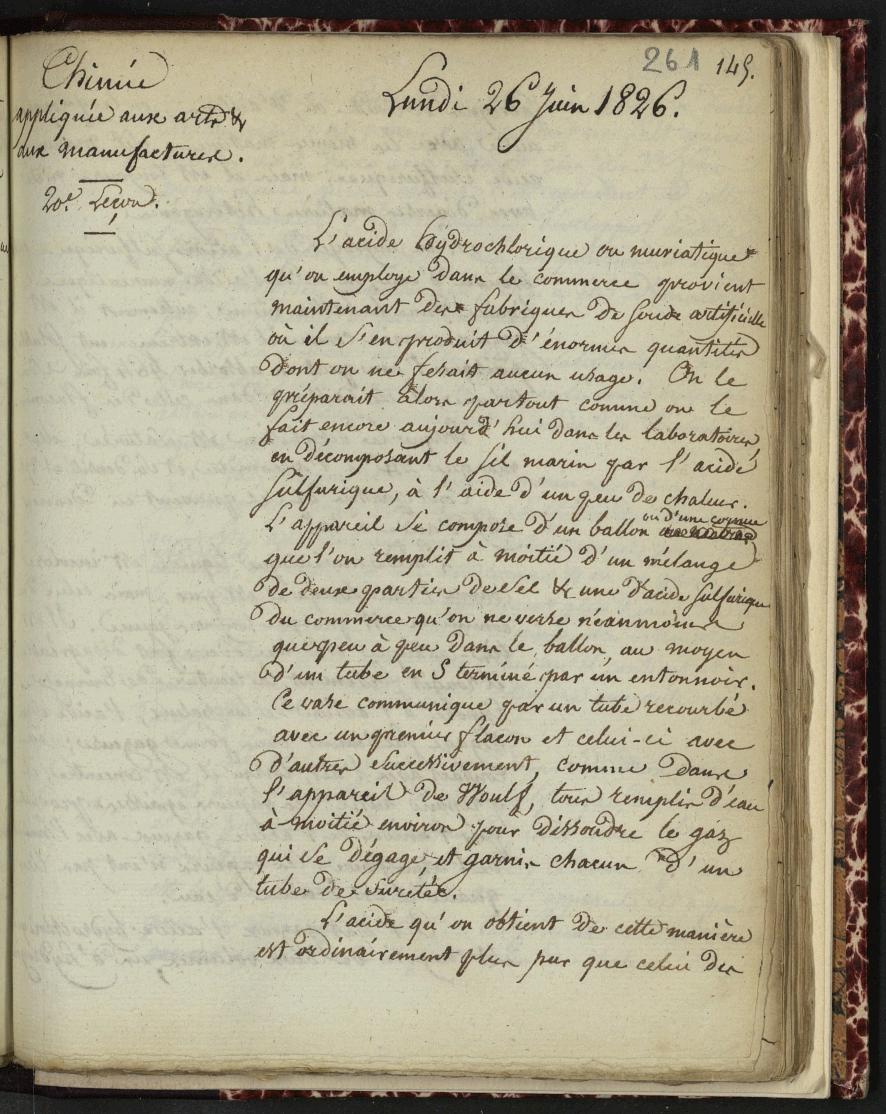 261 145.
Chimie
appliquée aux arts &
aux manufactures.
20e. Leçon.
Lundi 26 Juin 1826.
L'acide hydrochlorique ou muriatique
qu'on employe dans le commerce provient
maintenant des fabriques de soude artificielle
où il s'en produit d'énormes quantités
dont on ne fesait aucun usage. On le
préparait alors partout comme on le
fait encore aujourd'hui dans les laboratoires
en décomposant le sel marin par l'acide
sulfurique, à l'aide d'un peu de chaleur.
L'appareil se compose d'un ballon ou d'une cornue
que l'on remplit à moitié d'un mélange
de deux parties de sel & une d'acide sulfurique
du commerce qu'on ne verse néanmoins
que peu à peu dans le ballon, au moyen
d'un tube en S terminé par un entonnoir.
Ce vase communique par un tube recourbé
avec un premier flacon et celui-ci avec
d'autres successivement, comme dans
l'appareil de Woulf, tous remplis d'eau
à moitié environ pour dissoudre le gaz
qui se dégage et garnis chacun d'un
tube de sureté.
L'acide qu'on obtient de cette manière
est ordinairement plus pur que celui des